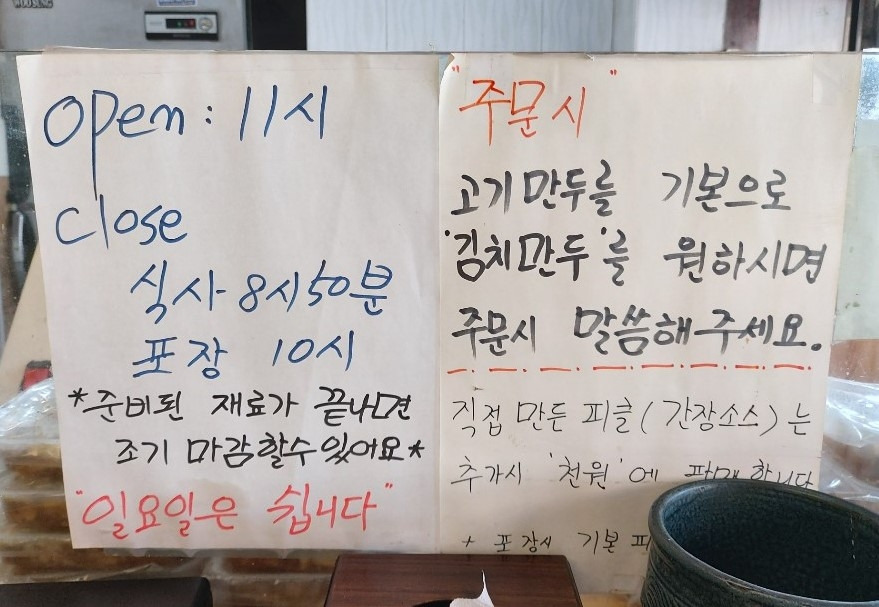 WOOSUNG
Open : 11시
Close
식사 8시50분
포장 10시
*준비된 재료가 끝나면
조기 마감할수있어요*
"일요일은 쉽니다"
"주문시"
고기만두를 기본으로
'김치만두'를 원하시면
주문시 말씀해주세요.
직접 만든 피클(간장소스)는
추가시 '천원'에 판매합니다
* 포장시 기본